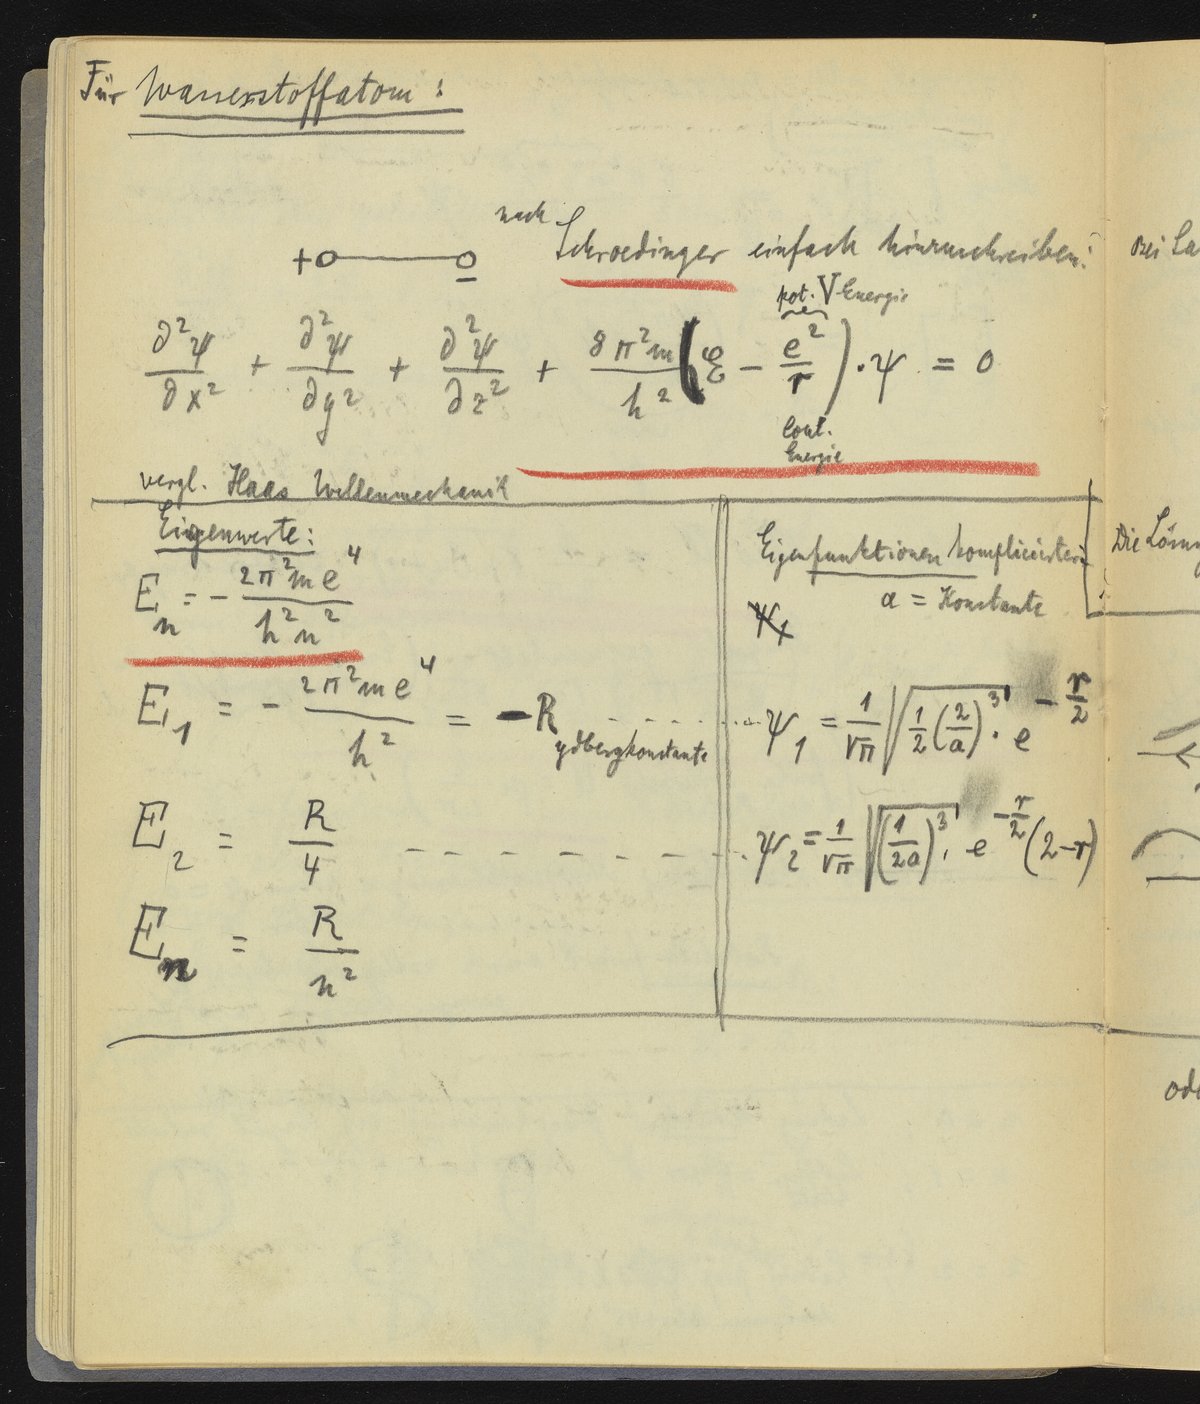 Für Wasserstoffatom:
nach Schroedinger einfach hinzuschreiben:
+o———o −
pot. V Energie
∂²ψ/∂x² + ∂²ψ/∂y² + ∂²ψ/∂z² + 8π²m/h² (E − e²/r) · ψ = 0
Energie
vergl. Haas Wellenmechanik
Eigenwerte:
E_n = − 2π²me⁴/h²n²
E_1 = − 2π²me⁴/h² = − Rydbergkonstante
E_2 = R/4
E_n = R/n²
Eigenfunktionen komplicierter:
a = Konstante
ψ_1 = 1/√π √(1/2 (2/a)³) · e^(−r/2)
ψ_2 = 1/√π √((1/2a)³) · e^(−r/2) (2−r)
Bei La
Die Lösung
odd